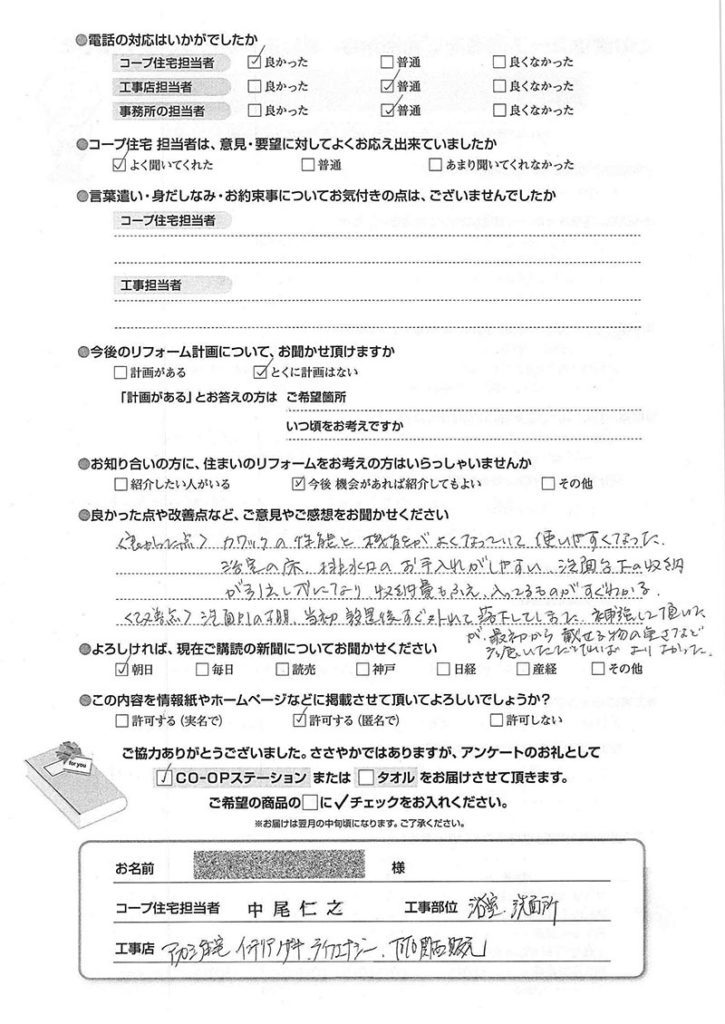 ●電話の対応はいかがでしたか
コープ住宅担当者 ☑良かった □普通 □良くなかった
工事店担当者 □良かった ☑普通 □良くなかった
事務所の担当者 □良かった ☑普通 □良くなかった
●コープ住宅 担当者は、意見・要望に対してよくお応え出来ていましたか
☑よく聞いてくれた □普通 □あまり聞いてくれなかった
●言葉遣い・身だしなみ・お約束事についてお気付きの点は、ございませんでしたか
コープ住宅担当者
工事担当者
●今後のリフォーム計画について、お聞かせ頂けますか
□計画がある ☑とくに計画はない
「計画がある」とお答えの方は ご希望箇所
いつ頃をお考えですか
●お知り合いの方に、住まいのリフォームをお考えの方はいらっしゃいませんか
□紹介したい人がいる ☑今後 機会があれば紹介してもよい □その他
●良かった点や改善点など、ご意見やご感想をお聞かせください
<良かった点> カワックの性能と機能がよくなっていて使いやすくなった。
浴室の床、排水口のお手入れがしやすい。洗面台下の収納
が引出し式になり収納量もふえ、入ってるものがすぐわかる。
<改善点> 洗面所の棚、当初設置後すぐ外れて落下してしまった。補強して頂いた
が、最初から載せる物の重さなど
考慮いただければよりよかった。
●よろしければ、現在ご購読の新聞についてお聞かせください
☑朝日 □毎日 □読売 □神戸 □日経 □産経 □その他
●この内容を情報紙やホームページなどに掲載させて頂いてよろしいでしょうか?
□許可する(実名で) ☑許可する(匿名で) □許可しない
for you
ご協力ありがとうございました。ささやかではありますが、アンケートのお礼として
☑CO-OPステーション または □タオル をお届けさせて頂きます。
ご希望の商品の□に✓チェックをお入れください。
※お届けは翌月の中旬頃になります。ご了承ください。
お名前 様
コープ住宅担当者 中尾仁之 工事部位 浴室、洗面所
工事店 アカシ住宅 インテリア ライフエナジー、